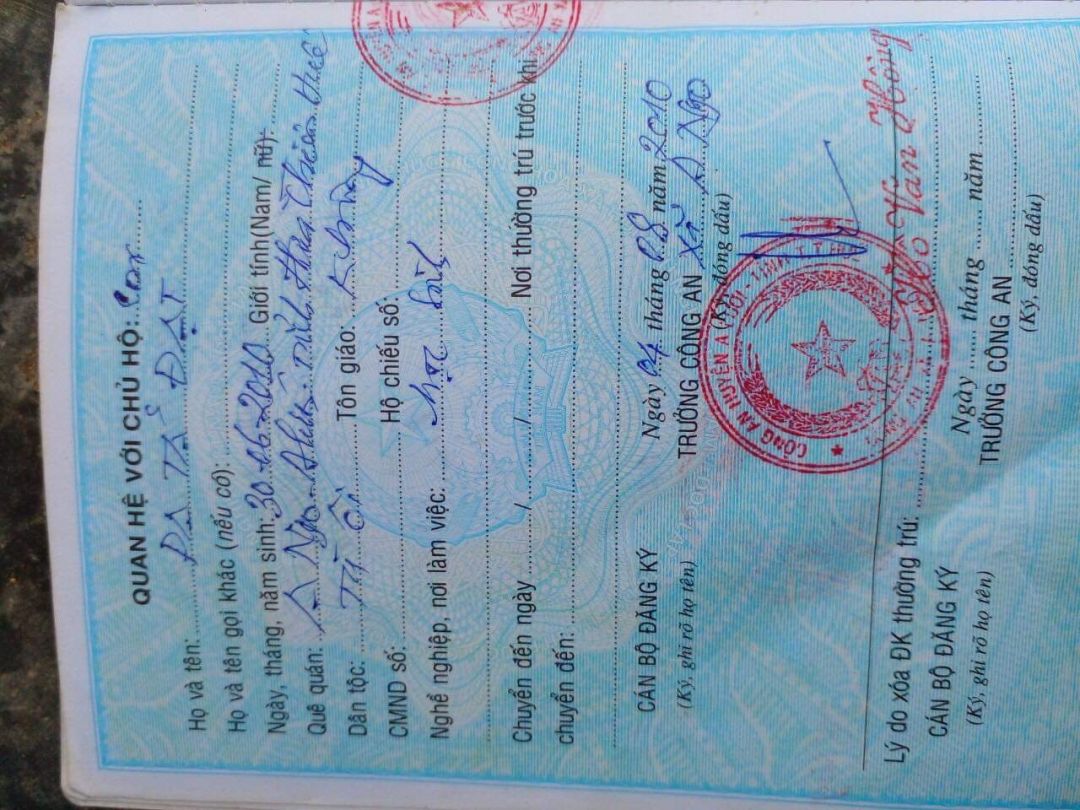 QUAN HỆ VỚI CHỦ HỘ: Con
Họ và tên: TẢ ĐẠT
Họ và tên gọi khác (nếu có):
Ngày, tháng, năm sinh: 30.06.2010 Giới tính(Nam/ nữ):
Quê quán: A Ngo. A Lưới. Tỉnh Thừa Thiên Huế
Dân tộc: Tà Ôi Tôn giáo: Không
CMND số: Hộ chiếu số:
Nghề nghiệp, nơi làm việc:
Chuyển đến ngày / / Nơi thường trú trước khi
chuyển đến:
Ngày 04 tháng năm 2010
CÁN BỘ ĐĂNG KÝ TRƯỞNG CÔNG AN Xã A Ngo
(Ký, ghi rõ họ tên) (Ký, đóng dấu)
CÔNG AN HUYỆN A LƯỚI
Hồ Văn Hồng
Lý do xóa ĐK thường trú:
Ngày tháng năm
CÁN BỘ ĐĂNG KÝ TRƯỞNG CÔNG AN
(Ký, ghi rõ họ tên) (Ký, đóng dấu)